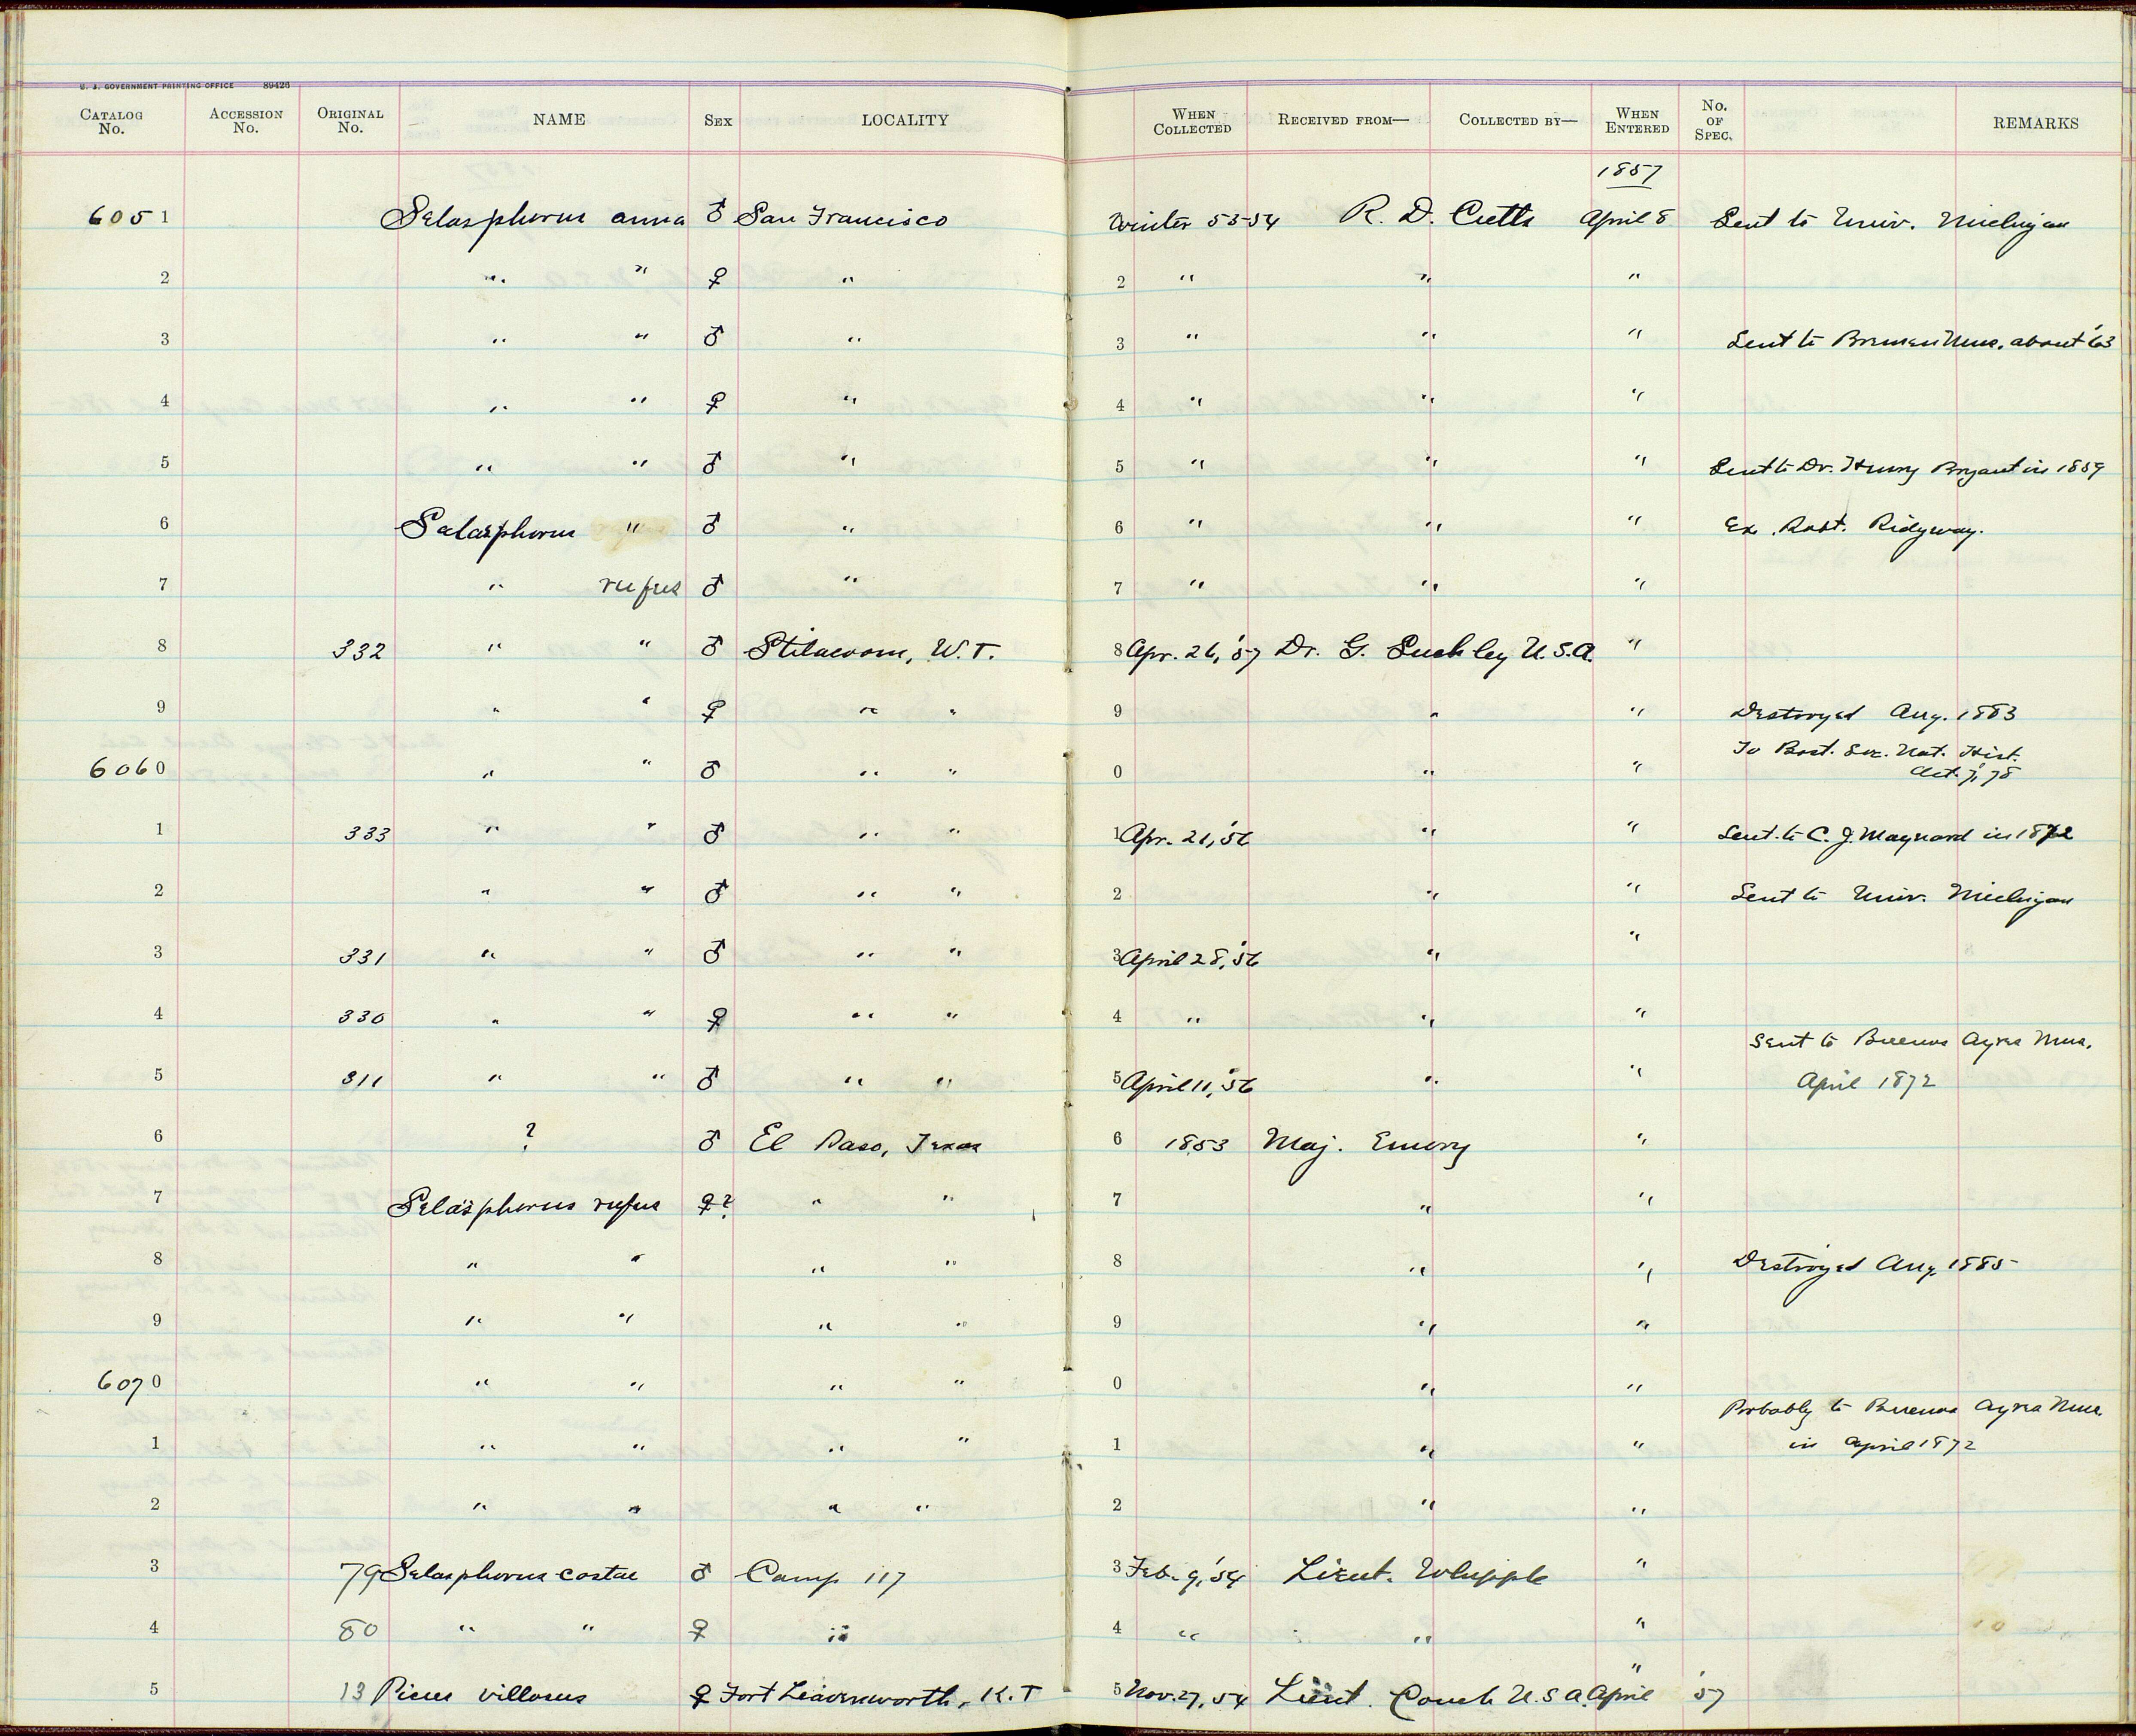 U. S. GOVERNMENT PRINTING OFFICE 89426
CATALOG No. ACCESSION No. ORIGINAL No. NAME SEX LOCALITY WHEN COLLECTED RECEIVED FROM— COLLECTED BY— WHEN ENTERED No. OF SPEC. REMARKS
1857
6051 Selasphorus anna ♂ San Francisco Winter 53-54 R. D. Cutts April 8 Sent to Univ. Michigan
2 " " ♀ " 2 " " "
3 " " ♂ " 3 " " " Sent to Bremen Mus. about '63
4 " " ♀ " 4 " " "
5 " " ♂ " 5 " " " Sent to Dr. Henry Bryant in 1859
6 Selasphorus " ♂ " 6 " " " Ex. Robt. Ridgway.
7 " rufus ♂ " 7 " " "
8 332 " " ♂ Stilacoom, W. T. 8 Apr. 26, '57 Dr. G. Suckley U.S.A. "
9 " " ♀ " " 9 " " Destroyed Aug. 1883
6060 " " ♂ " " 0 " " To Bost. Soc. Nat. Hist.
Oct. 7, '78
1 333 " " ♂ " " 1 Apr. 21, '56 " " Sent to C. J. Maynard in 1872
2 " " ♂ " " 2 " " Sent to Univ. Michigan
3 331 " " ♂ " " 3 April 28, '56 " "
4 330 " " ♀ " " 4 " " "
5 311 " " ♂ " " 5 April 11, '56 " " Sent to Buenos Ayres Mus.
April 1872
6 ? ♂ El Paso, Texas 6 1853 Maj. Emory "
7 Selasphorus rufus ♀? " " 7 " "
8 " " " " 8 " " Destroyed Aug. 1885
9 " " " " 9 " "
6070 " " " " 0 " "
1 " " " " 1 " " Probably to Buenos Ayres Mus.
in April 1872
2 " " " " 2 " "
3 79 Selasphorus costae ♂ Camp 117 3 Feb. 9, '54 Lieut. Whipple "
4 80 " " ♀ " 4 " " "
5 13 Picus villosus ♀ Fort Leavenworth, K. T 5 Nov. 27, 54 Lieut. Couch U.S.A. " April '57